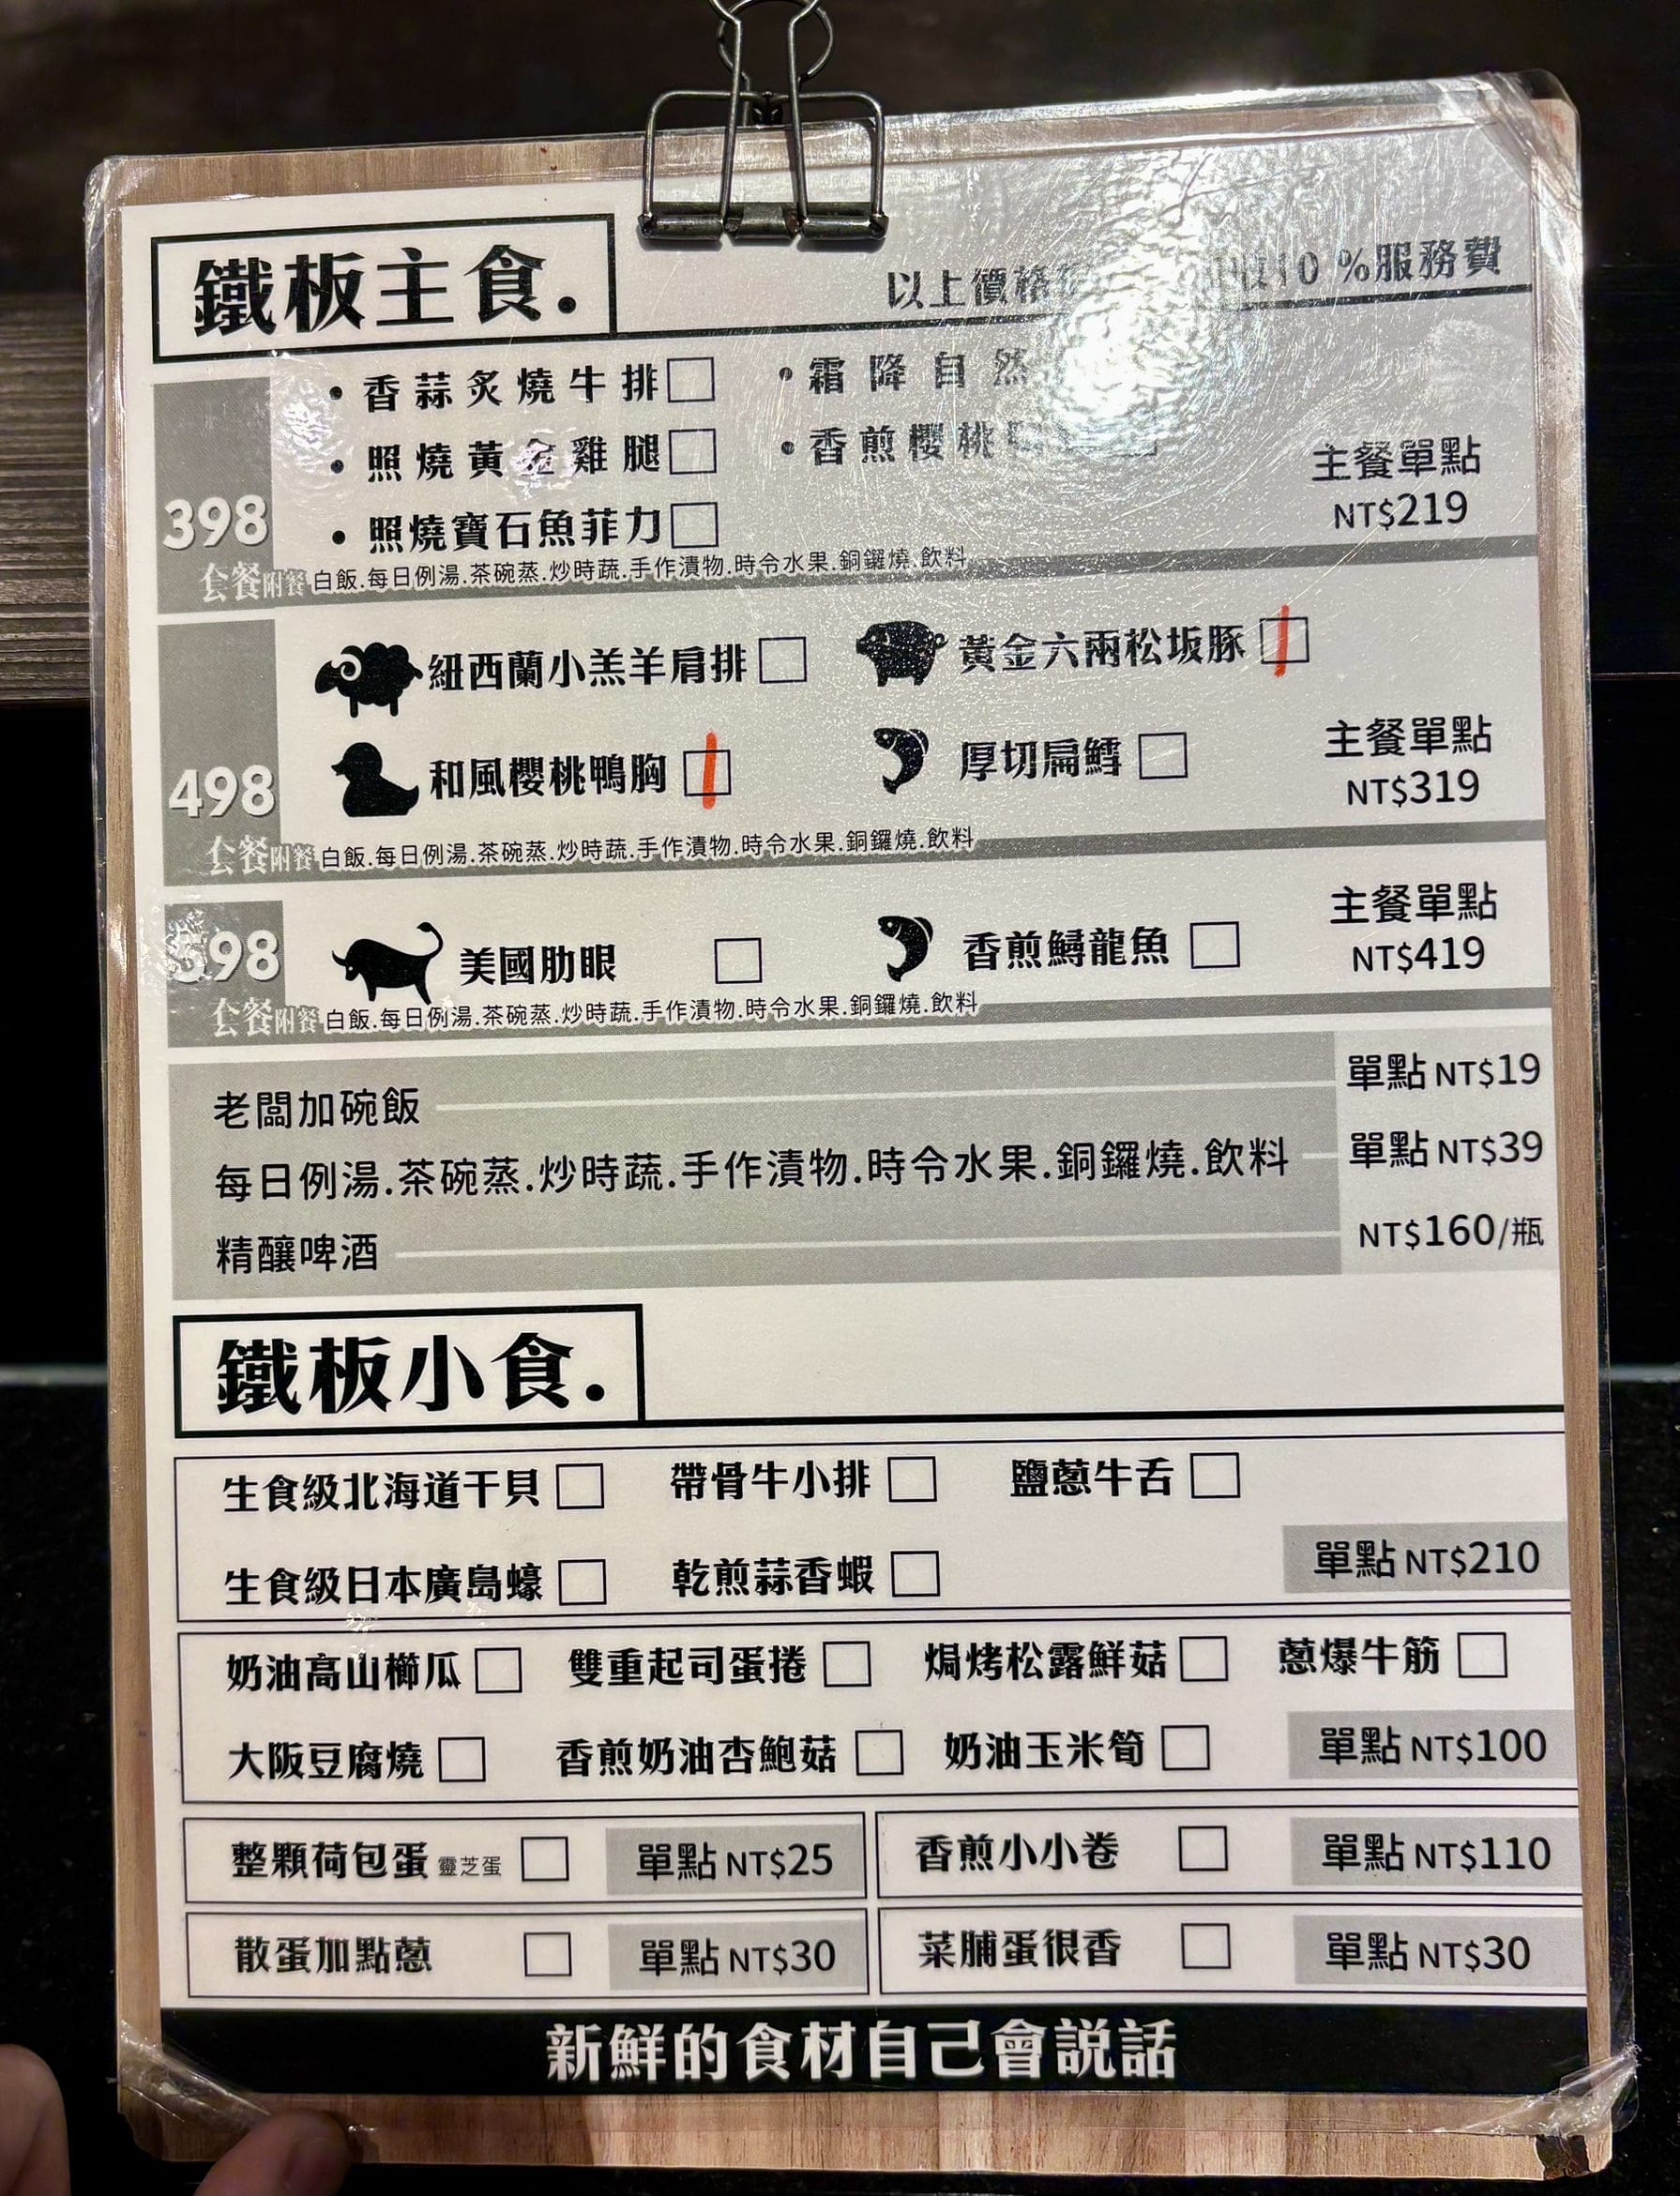 鐵板主食.
以上價格 10 %服務費
• 香蒜炙燒牛排
• 霜降自然
• 照燒黃金雞腿
• 香煎櫻桃
• 照燒寶石魚菲力
398
主餐單點
NT$219
套餐附餐 白飯.每日例湯.茶碗蒸.炒時蔬.手作漬物.時令水果.銅鑼燒.飲料
紐西蘭小羔羊肩排
黃金六兩松坂豚
和風櫻桃鴨胸
厚切扁鱈
498
主餐單點
NT$319
套餐附餐 白飯.每日例湯.茶碗蒸.炒時蔬.手作漬物.時令水果.銅鑼燒.飲料
598
美國肋眼
香煎鱘龍魚
主餐單點
NT$419
套餐附餐 白飯.每日例湯.茶碗蒸.炒時蔬.手作漬物.時令水果.銅鑼燒.飲料
老闆加碗飯 單點 NT$19
每日例湯.茶碗蒸.炒時蔬.手作漬物.時令水果.銅鑼燒.飲料 單點 NT$39
精釀啤酒 NT$160/瓶
鐵板小食.
生食級北海道干貝 帶骨牛小排 鹽蔥牛舌
生食級日本廣島蠔 乾煎蒜香蝦 單點 NT$210
奶油高山櫛瓜 雙重起司蛋捲 焗烤松露鮮菇 蔥爆牛筋
大阪豆腐燒 香煎奶油杏鮑菇 奶油玉米筍 單點 NT$100
整顆荷包蛋 靈芝蛋 單點 NT$25 香煎小小卷 單點 NT$110
散蛋加點蔥 單點 NT$30 菜脯蛋很香 單點 NT$30
新鮮的食材自己會説話